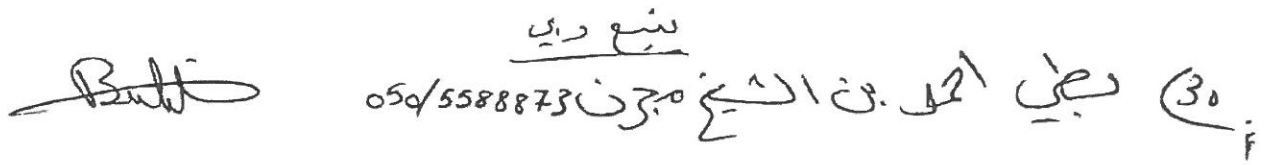 ينبع دبي
30) بطي أحمد بن الشيخ مجرن 050/5588873